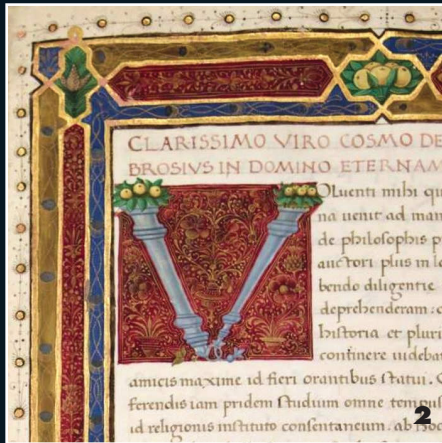 CLARISSIMO VIRO COSMO DE
BROSIVS IN DOMINO ETERNAM
VOluenti mihi qu
na uenit ad man
de philosophis p
auctori plus in le
bendo diligentie
deprehenderam: c
historia et pluri
continere uideba
amicis maxime id fieri orantibus statui. C
ferendis iam pridem studium omne tempus
id religionis instituto consentaneum. ab
2